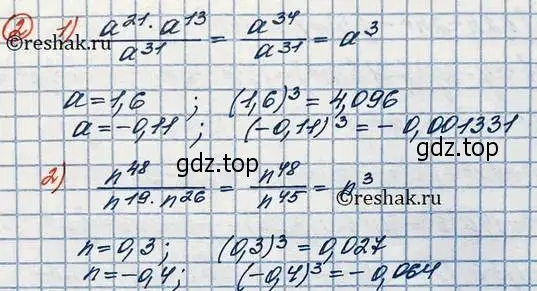 ② 1) a²¹·a¹³/a³¹ = a³⁴/a³¹ = a³
©reshak.ru
a=1,6 ; (1,6)³=4,096
a=-0,11 ; (-0,11)³=-0,001331
gdz.top gdz.top
2) n⁴⁸/n¹⁹·n²⁶ = n⁴⁸/n⁴⁵ = n³
©reshak.ru
n=0,3; (0,3)³=0,027
n=-0,4; (-0,4)³=-0,064
gdz.top gdz.top